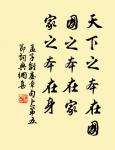 天下之本在國
國之本在家
家之本在身
孟子離婁章句上第五
節詞典網集